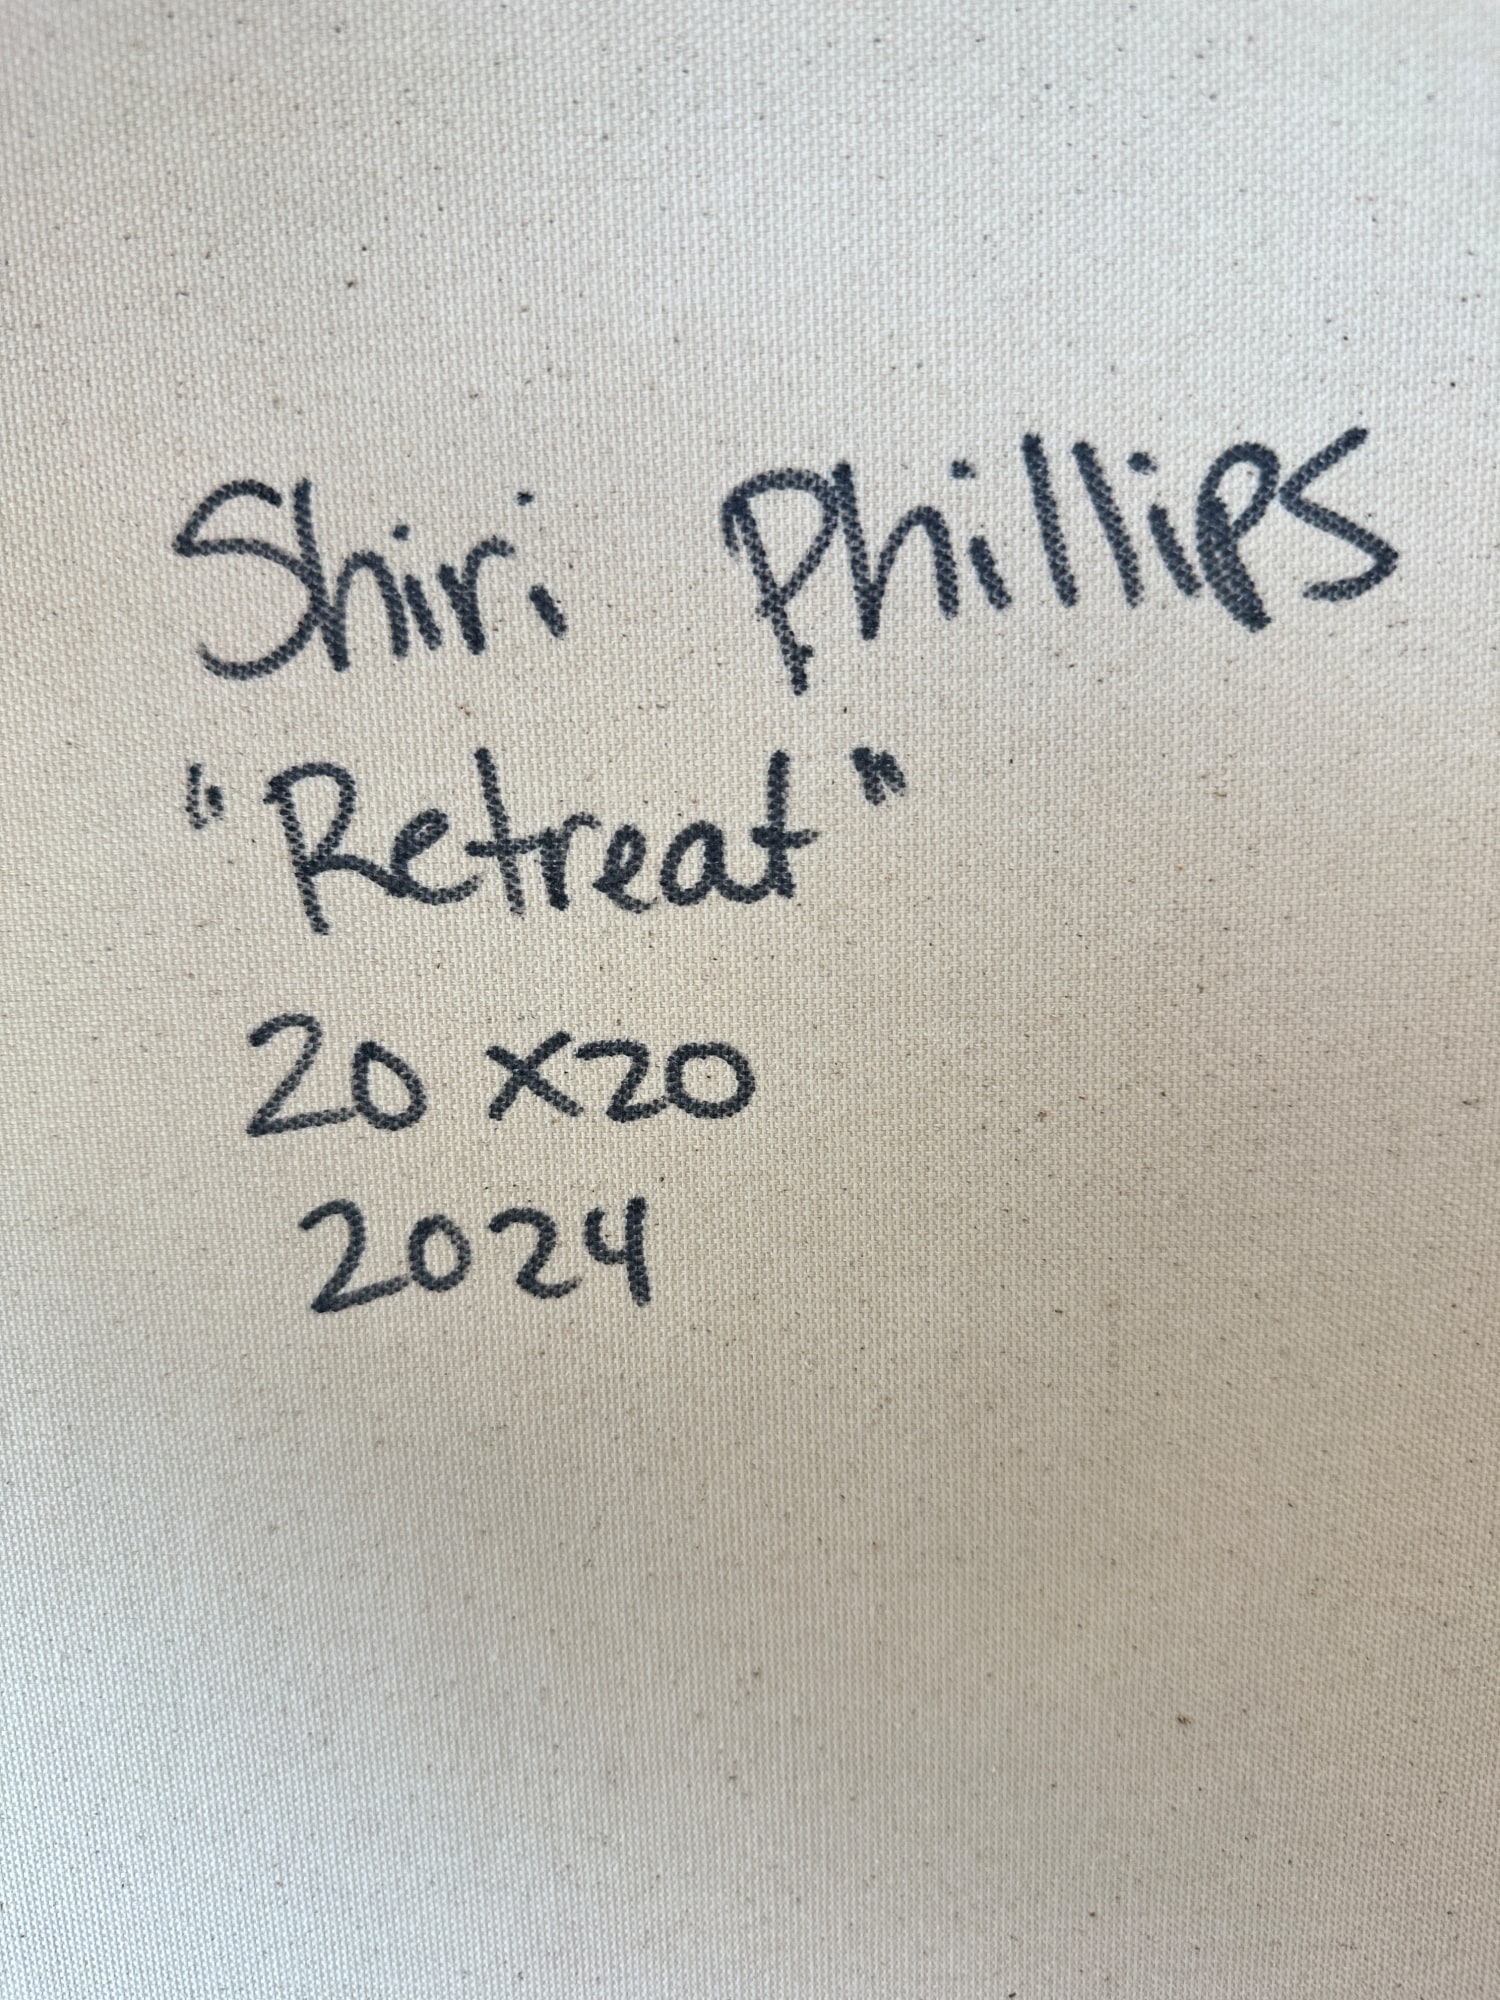 Shiri Phillips
"Retreat"
20 x 20
2024